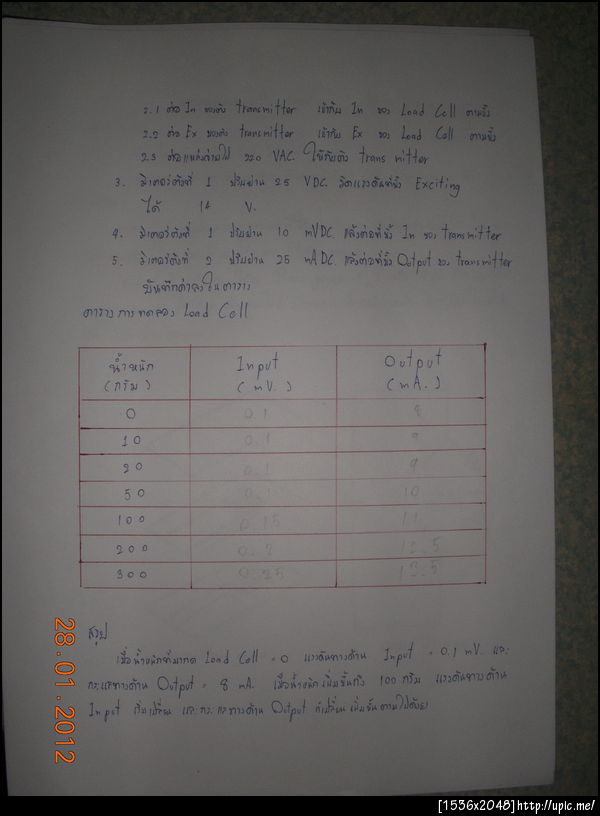 2.1 ต่อ In ของตัว transmitter เข้ากับ In ของ Load Cell ตามขั้ว
2.2 ต่อ Ex ของตัว transmitter เข้ากับ Ex ของ Load Cell ตามขั้ว
2.3 ต่อแหล่งจ่ายไฟ 220 VAC. ให้กับตัว transmitter
3. มิเตอร์ตัวที่ 1 ปรับย่าน 25 VDC. วัดแรงดันที่ขั้ว Exciting
ได้ 14 V.
4. มิเตอร์ตัวที่ 1 ปรับย่าน 10 mVDC. แล้วต่อที่ขั้ว In ของ transmitter
5. มิเตอร์ตัวที่ 2 ปรับย่าน 25 mADC. แล้วต่อที่ขั้ว Output ของ transmitter
บันทึกค่าลงในตาราง
ตารางการทดลอง Load Cell
น้ำหนัก Input Output
(กรัม) (mV.) (mA.)
0 0.1 8
10 0.1 9
20 0.1 9
50 0.1 10
100 0.15 11
200 0.2 12.5
300 0.25 13.5
สรุป
เมื่อน้ำหนักที่มากด Load Cell = 0 แรงดันทางด้าน Input = 0.1 mV. และ
กระแสทางด้าน Output = 8 mA. เมื่อน้ำหนักเพิ่มขึ้นถึง 100 กรัม แรงดันทางด้าน
Input เริ่มเปลี่ยน และกระแสทางด้าน Output ก็เปลี่ยนเพิ่มขึ้นตามไปด้วย
28.01.2012
[1536x2048]http://upic.me/